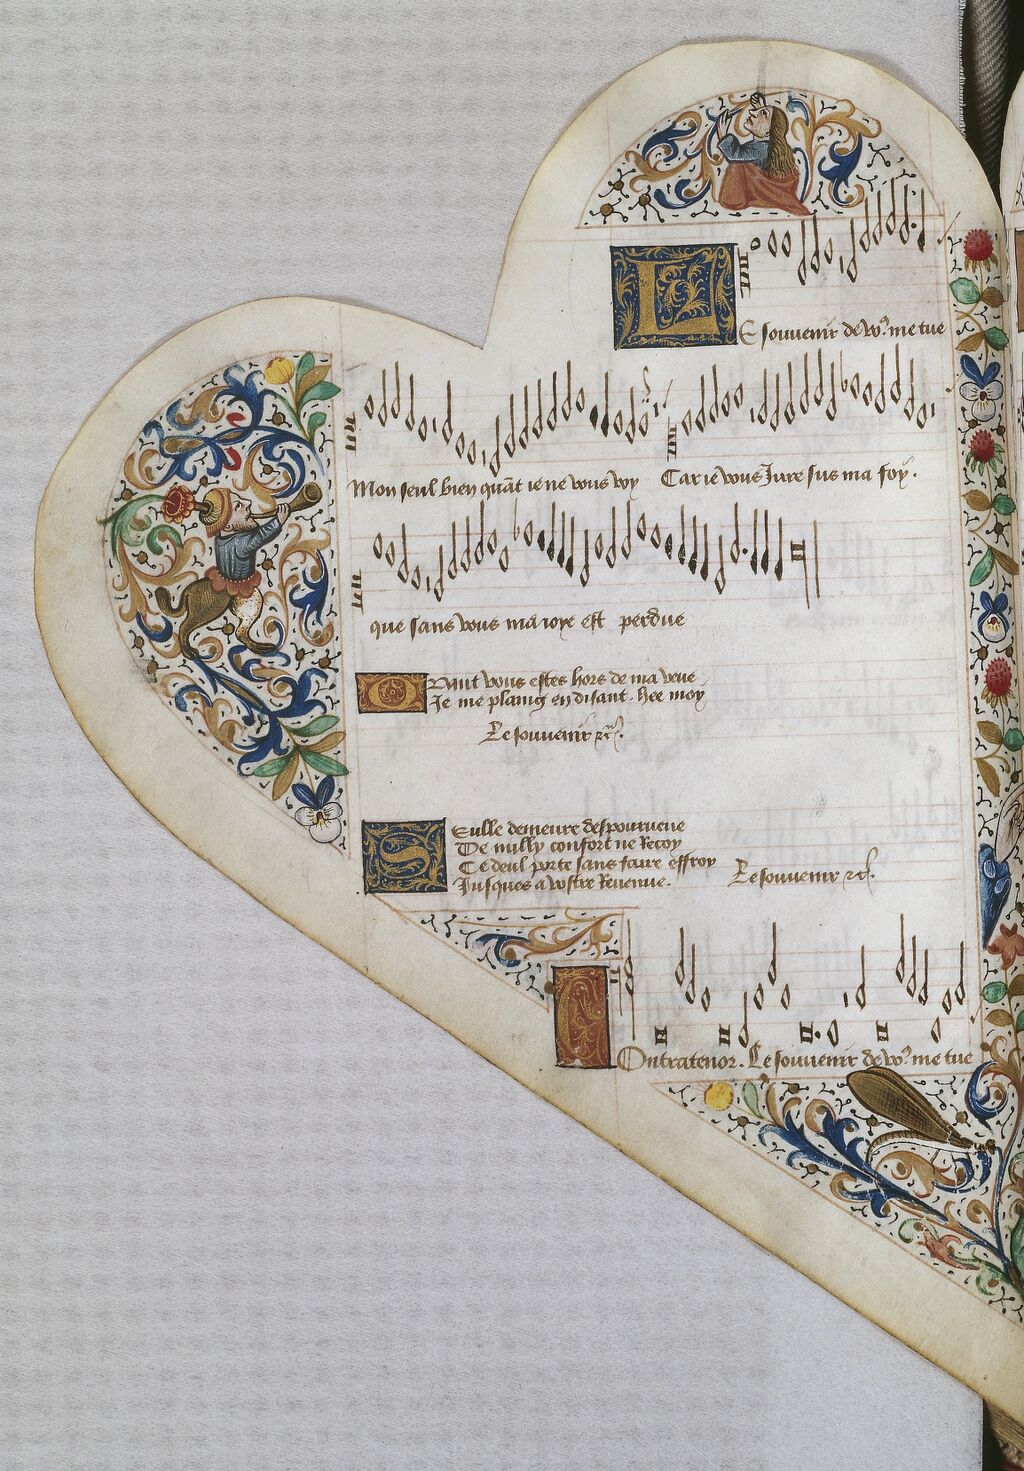 LE souvenir de vo9 me tue
Mon seul bien quãt ie ne vous voy Car ie vous Jure sus ma foy.
que sans vous ma ioye est perdue
Quant vous estes hors de ma veue
Je me plaing en disant. hee moy
Le souvenir
Seulle demeure despourueue
De nully confort ne Recoy
Ce deul porte sans faire effroy
Jusques a vostre Revenue.
Le souvenir
Contratenor. Le souvenir de vo9 me tue